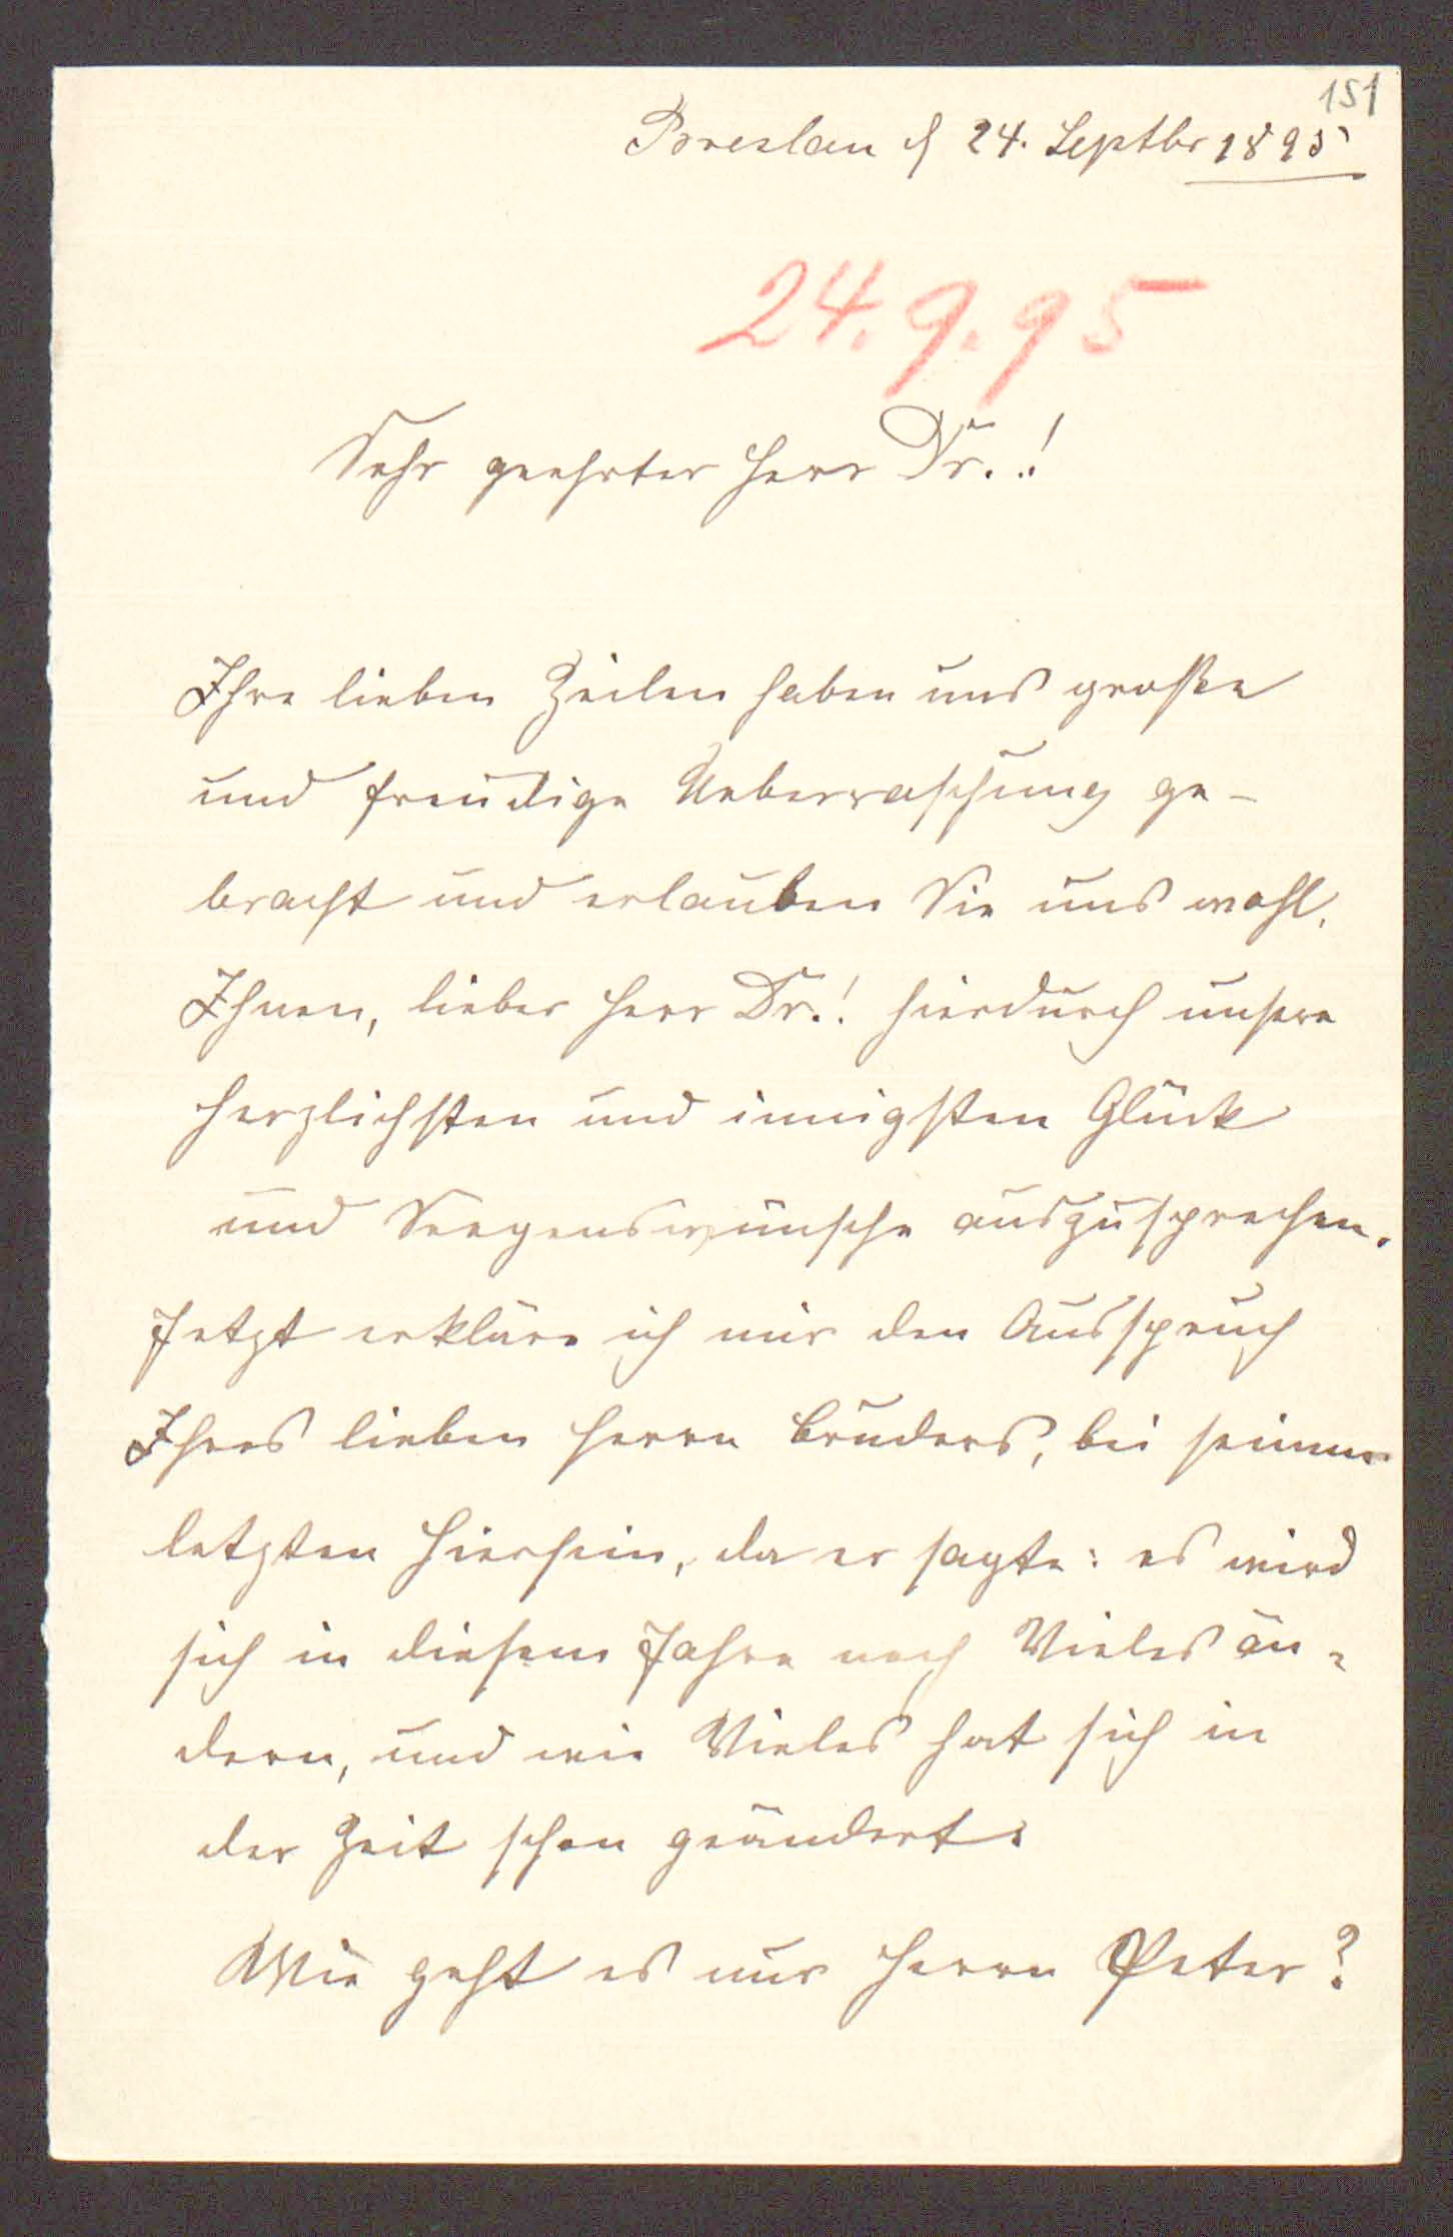 151
Breslau d 24. Septbr 1895
24.9.95
Sehr geehrter Herr Dr.!
Ihre lieben Zeilen haben uns große
und freudige Ueberraschung ge-
bracht und erlauben Sie uns wohl,
Ihnen, lieber Herr Dr.! hierdurch unsere
herzlichsten und innigsten Glück
und Seegenswünsche auszusprechen.
Jetzt erkläre ich mir den Ausspruch
Ihres lieben Herrn Bruders, bei seinem
letzten Hiersein, da er sagte: es wird
sich in diesem Jahre noch Vieles än-
dern, und wie Vieles hat sich in
der Zeit schon geändert.
Wie geht es nur Herrn Peter?